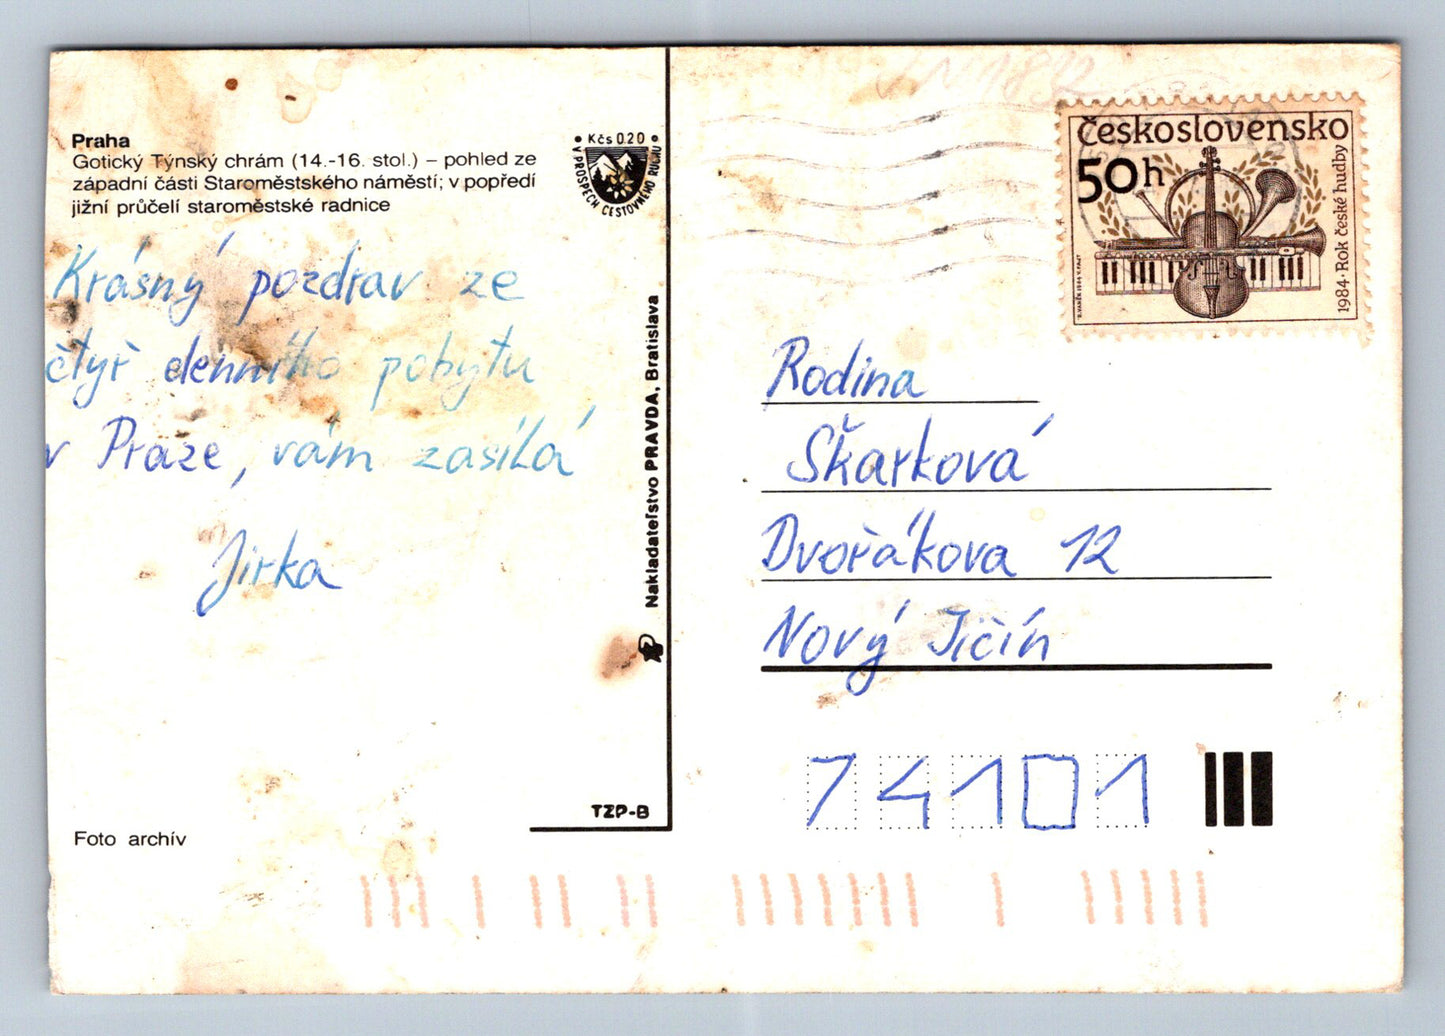 Praha
Gotický Týnský chrám (14.-16. stol.) – pohled ze
západní části Staroměstského náměstí; v popředí
jižní průčelí staroměstské radnice
• Kčs 0.20 •
V PROSPECH CESTOVNÉHO RUCHU
Krásný pozdrav ze
čtyř denního pobytu
v Praze, vám zasílá
Jirka
Nakladateľstvo PRAVDA, Bratislava
TZP-B
Foto archív
Československo
50h
1984 · Rok české hudby
Rodina
Škarková
Dvořákova 12
Nový Jičín
74101